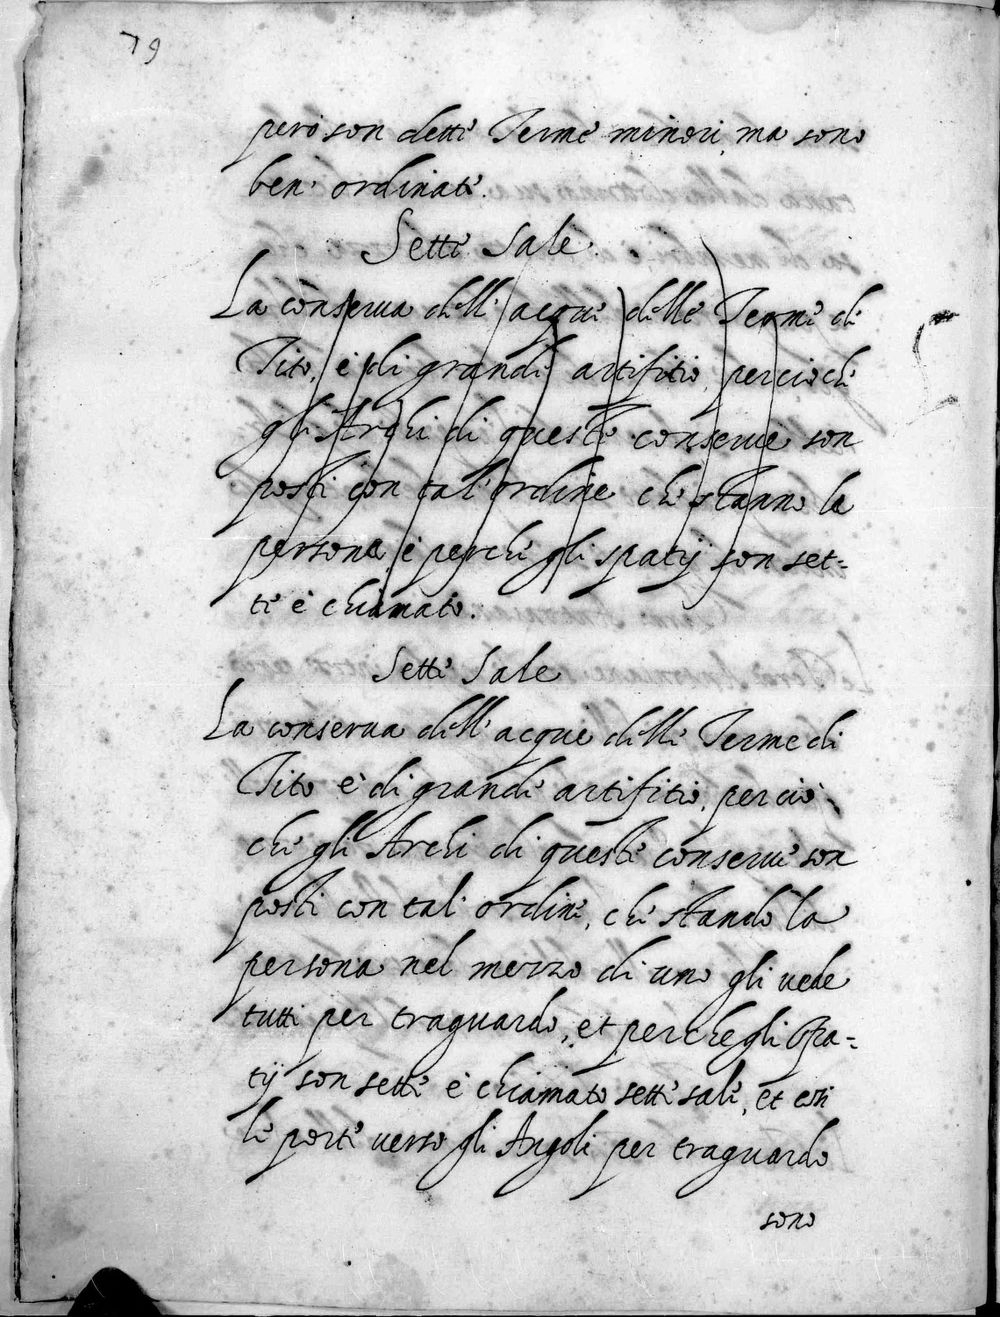 79
però son dette Terme minori, ma sono
ben' ordinate.
Sette Sale.
La conserua dell' acque delle Terme di
Tito, è di grande artifitio, percioche
gli Archi di queste conserue son
posti con tal' ordine che stanno la
persona, e perche gli spatij son set-
te è chiamato.
Sette Sale
La conserua dell' acque delle Terme di
Tito è di grande artifitio, percio
che gli Archi di queste conserue son
posti con tal' ordine, che stando la
persona nel mezzo di uno gli uede
tutti per traguardo, et perche gli spa-
tij son sette è chiamato sette sale, et con
le porte uerso gli Angoli per traguardo
sono